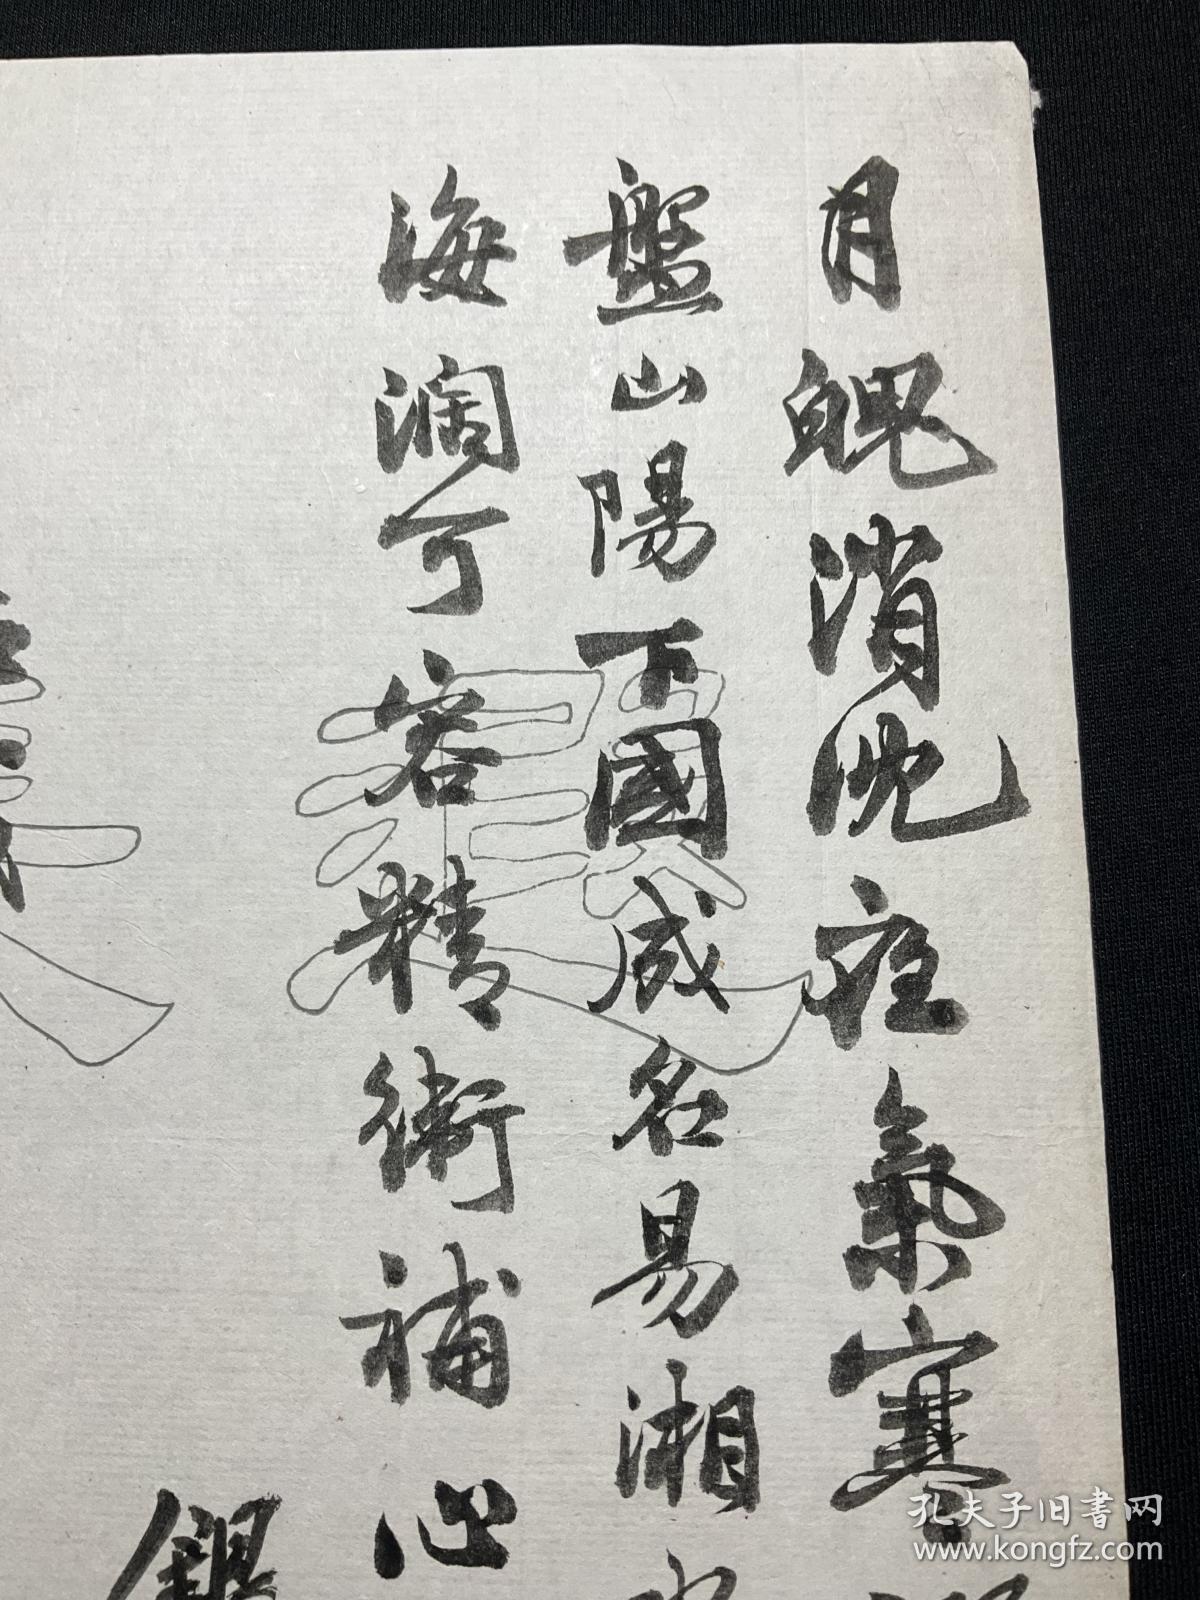 月魄消沈旺氣寒
盤山陽下國成名易湘
海濶可容精術補心
銀
孔夫子旧书网
www.kongfz.com